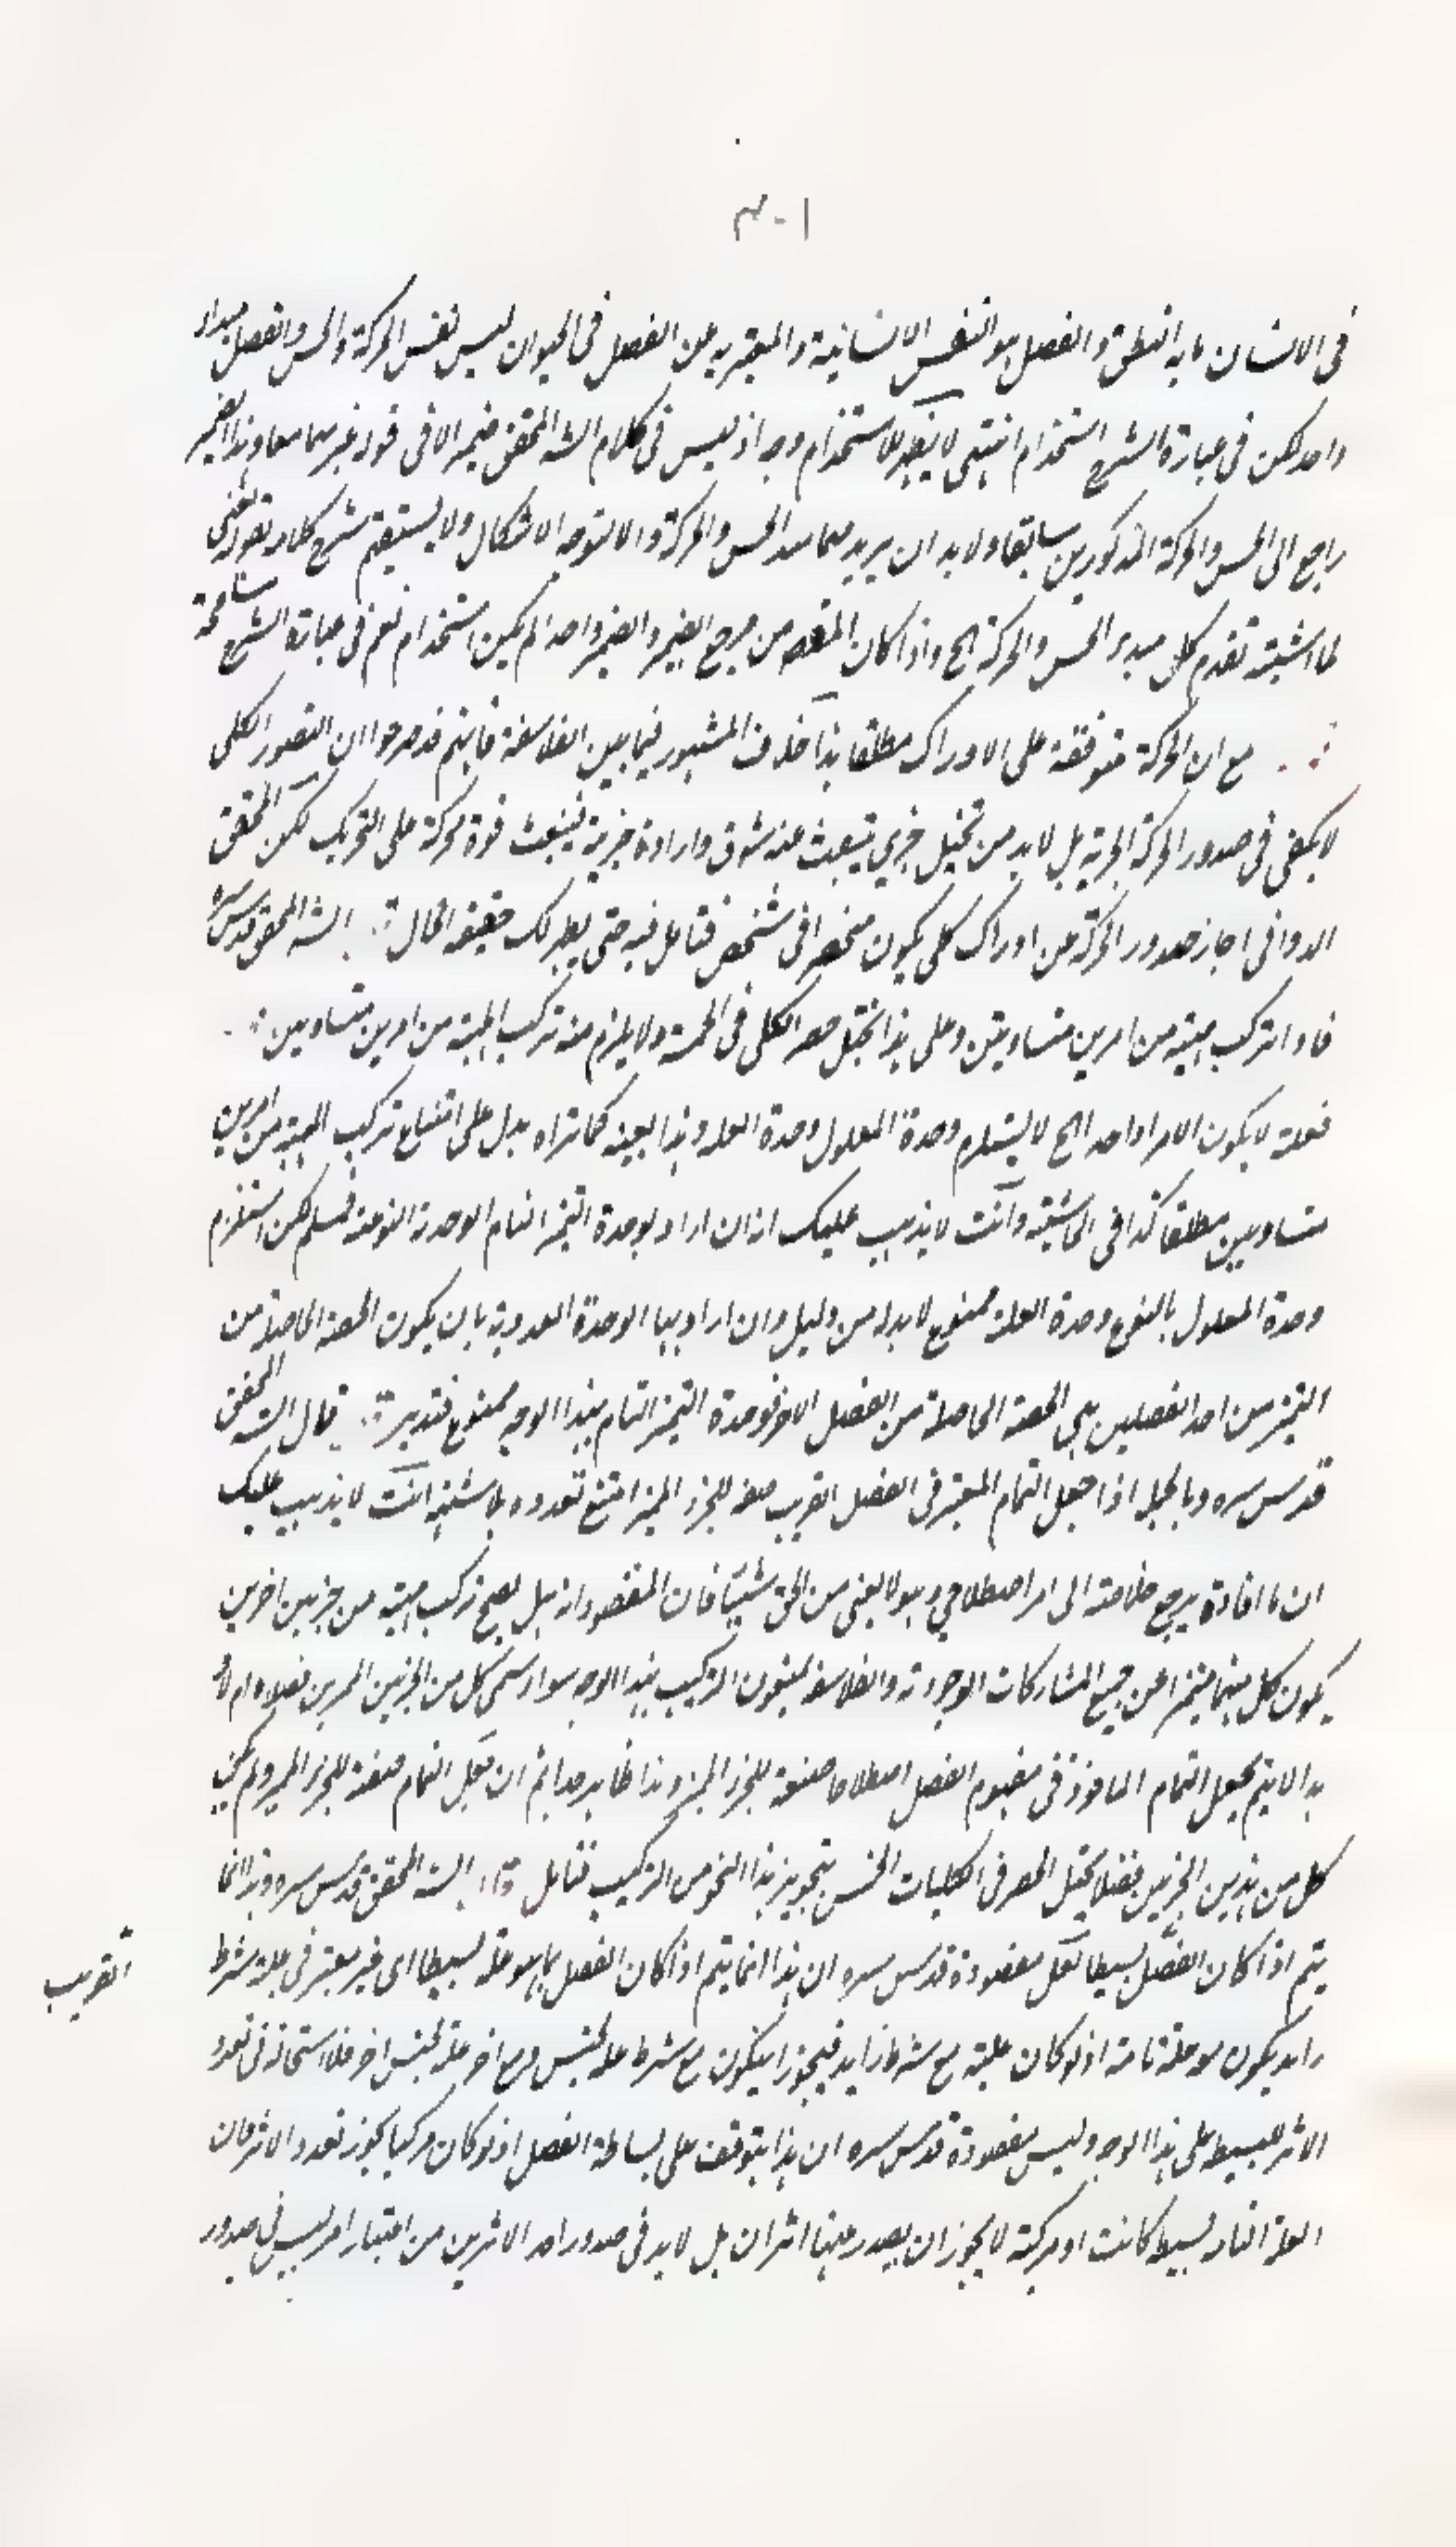 في الانسان ما به النطق والفصل هو النفس الانسانية والمعبر به عن الفصل في الحيوان ليس نفس الحركة والحس والفصل مبداء
واحد لكن في عبارة الشرح استخدام انتهى لا يظهر للاستخدام وجه اذ ليس في كلام الشه المحقق ضمير الا في قوله غيرهما معا وهذا الضمير
راجع الى الحس والحركة المذكورين سابقا ولا بد ان يريد بهما مبدا الحس والحركة والا لتوجه الاشكال ولا يستقيم شرح كلامه بقوله يعني
لما اشتبه تقدم كل مبدء الحس والحركة الخ واذا كان المقصود من مرجع الضمير والضمير واحدا لم يكن استخدام نعم في عبارة الشرح مسامحة
مع ان الحركة متوقفة على الادراك مطلقا هذا خلاف المشهور فيما بين الفلاسفة فانهم قد صرحوا ان التصور الكلي
لا يكفي في صدور الحركة الجزئية بل لا بد من تخيل جزئي ينبعث عنه شوق وارادة جزئية فينبعث قوة محركة على التحريك لكن المحقق
الدواني اجاز صدور الحركة عن ادراك كلي يكون منحصرا في شخص فتامل فيه حتى يظهر لك حقيقة الحال الشه المحقق قدس سره
فاذا تركب مهية من امرين متساويين وعلى هذا يختل حصر الكلي في الخمسة ولا يلزم منه تركب المهية من امرين متساويين
فعلته لا يكون الا امرا واحدا الخ لا يستلزم وحدة المعلول وحدة العلة وهذا بعينه كما تراه يدل على امتناع تركب المهية من امرين
متساويين مطلقا كذا في الحاشية وانت لا يذهب عليك انه ان اراد بوحدة التميز التام الوحدة النوعية فمسلم لكن استلزم
وحدة المعلول بالنوع وحدة العلة ممنوع لا بد له من دليل وان اراد بها الوحدة العددية بان يكون الحصة الحاصلة من
التميز من احد الفصلين هي الحصة الحاصلة من الفصل الاخر فوحدة التميز التام بهذا الوجه ممنوع فتدبر قال الشه المحقق
قدس سره وبالجملة اذا جعل التمام المعتبر في الفصل القريب صفة للجزء المميز امتنع تعدده بلا شبهة انت لا يذهب عليك
ان ما افاده يرجع خلاصته الى امر اصطلاحي وهو لا يغني من الحق شيئا فان المقصود انه هل يصح تركب مهية من جزئين اخرين
يكون كل منهما متميزا عن جميع المشاركات الوجودية والفلاسفة ينفون التركيب بهذا الوجه سواء سمي كل من الجزئين المميزين فصلا ام لا
هذا لا يتم بجعل التمام الماخوذ في مفهوم الفصل اصطلاحا صفة للجزء المميز وهذا ظاهر جدا ثم ان جعل التمام صفة للجزء المميز ولم يكن
كل من هذين الجزئين فصلا يختل الحصر في الكليات الخمس بتجويز هذا النحو من التركيب فتامل الشه المحقق قدس سره وهذا انما
يتم اذا كان الفصل بسيطا لعل مقصوده قدس سره ان هذا انما يتم اذا كان الفصل بما هو علة بسيطا اي غير معتبر في علته شرط
زايد يكون هو علة تامة اذ لو كان علية مع شرط زايد فيجوز ان يكون مع شرط علة لجنس ومع اخر علة لجنس اخر فلا استحالة في تعدد
الاثر للبسيط على هذا الوجه وليس مقصوده قدس سره ان هذا يتوقف على بساطة الفصل اذ لو كان مركبا يجوز تعدد الاثر فان
العلة التامة بسيطة كانت او مركبة لا يجوز ان يصدر عنها اثران بل لا بد في صدور احد الاثرين من اعتبار امر ليس في صدور